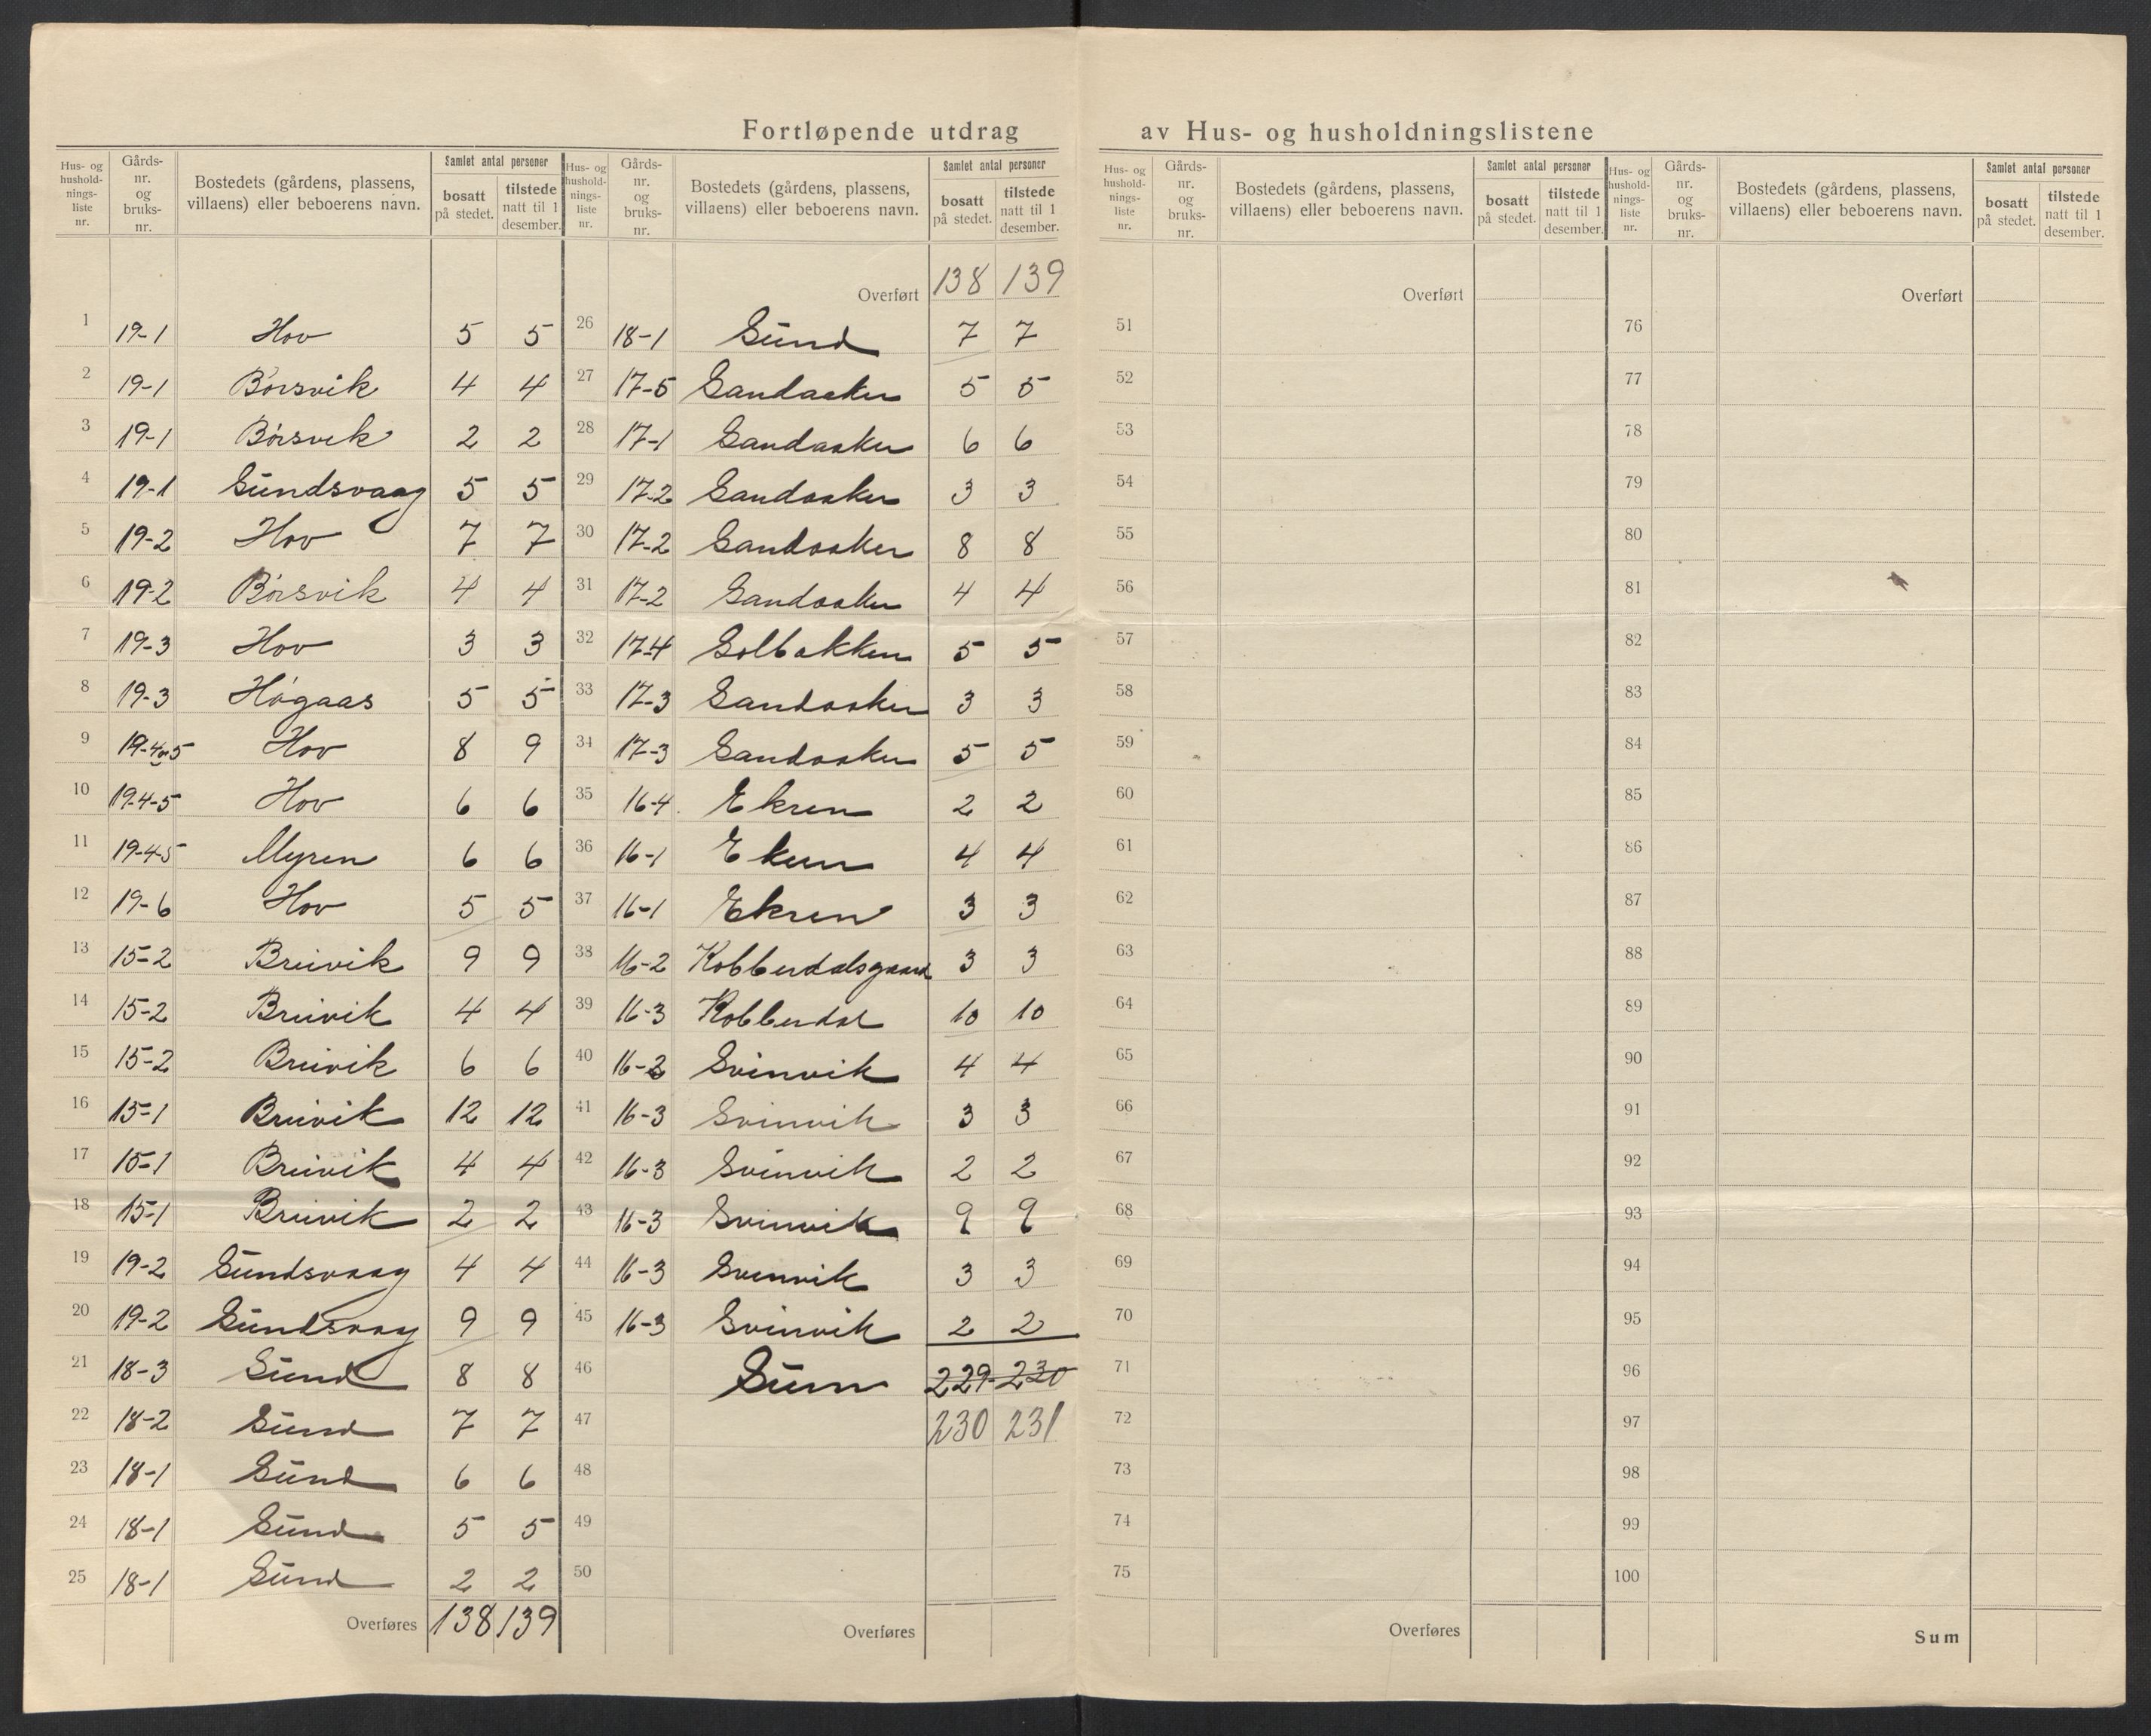 Fortløpende utdrag av Hus- og husholdningslistene
Hus- og husholdnings-liste nr. | Gårds-nr. og bruks-nr. | Bostedets (gårdens, plassens, villaens) eller beboerens navn. | Samlet antal personer | bosatt på stedet. | tilstede natt til 1 desember.
1 19-1 Hov 5 5
2 19-1 Børsvik 4 4
3 19-1 Børsvik 2 2
4 19-1 Sundsvaag 5 5
5 19-2 Hov 7 7
6 19-2 Børsvik 4 4
7 19-3 Hov 3 3
8 19-3 Høgaas 5 5
9 19-4og5 Hov 8 9
10 19-4-5 Hov 6 6
11 19-4-5 Myren 6 6
12 19-6 Hov 5 5
13 15-2 Breivik 9 9
14 15-2 Breivik 4 4
15 15-2 Breivik 6 6
16 15-1 Breivik 12 12
17 15-1 Breivik 4 4
18 15-1 Breivik 2 2
19 19-2 Sundsvaag 4 4
20 19-2 Sundsvaag 9 9
21 18-3 Sund 8 8
22 18-2 Sund 7 7
23 18-1 Sund 6 6
24 18-1 Sund 5 5
25 18-1 Sund 2 2
Overføres 138 139
Hus- og husholdnings-liste nr. | Gårds-nr. og bruks-nr. | Bostedets (gårdens, plassens, villaens) eller beboerens navn. | Samlet antal personer | bosatt på stedet. | tilstede natt til 1 desember.
Overført 138 139
26 18-1 Sund 7 7
27 17-5 Sandaaker 5 5
28 17-1 Sandaaker 6 6
29 17-2 Sandaaker 3 3
30 17-2 Sandaaker 8 8
31 17-2 Sandaaker 4 4
32 17-4 Solbakken 5 5
33 17-3 Sandaaker 3 3
34 17-3 Sandaaker 5 5
35 16-4 Ekren 2 2
36 16-1 Ekren 4 4
37 16-1 Ekren 3 3
38 16-2 Kobberdalsgaard 3 3
39 16-3 Kobberdal 10 10
40 16-2 Svinvik 4 4
41 16-3 Svinvik 3 3
42 16-3 Svinvik 2 2
43 16-3 Svinvik 9 9
44 16-3 Svinvik 3 3
45 16-3 Svinvik 2 2
46 Sum 229 230
47 230 231
48
49
50
Overføres
Hus- og husholdnings-liste nr. | Gårds-nr. og bruks-nr. | Bostedets (gårdens, plassens, villaens) eller beboerens navn. | Samlet antal personer | bosatt på stedet. | tilstede natt til 1 desember.
Overført
51
52
53
54
55
56
57
58
59
60
61
62
63
64
65
66
67
68
69
70
71
72
73
74
75
Overføres
Hus- og husholdnings-liste nr. | Gårds-nr. og bruks-nr. | Bostedets (gårdens, plassens, villaens) eller beboerens navn. | Samlet antal personer | bosatt på stedet. | tilstede natt til 1 desember.
Overført
76
77
78
79
80
81
82
83
84
85
86
87
88
89
90
91
92
93
94
95
96
97
98
99
100
Sum